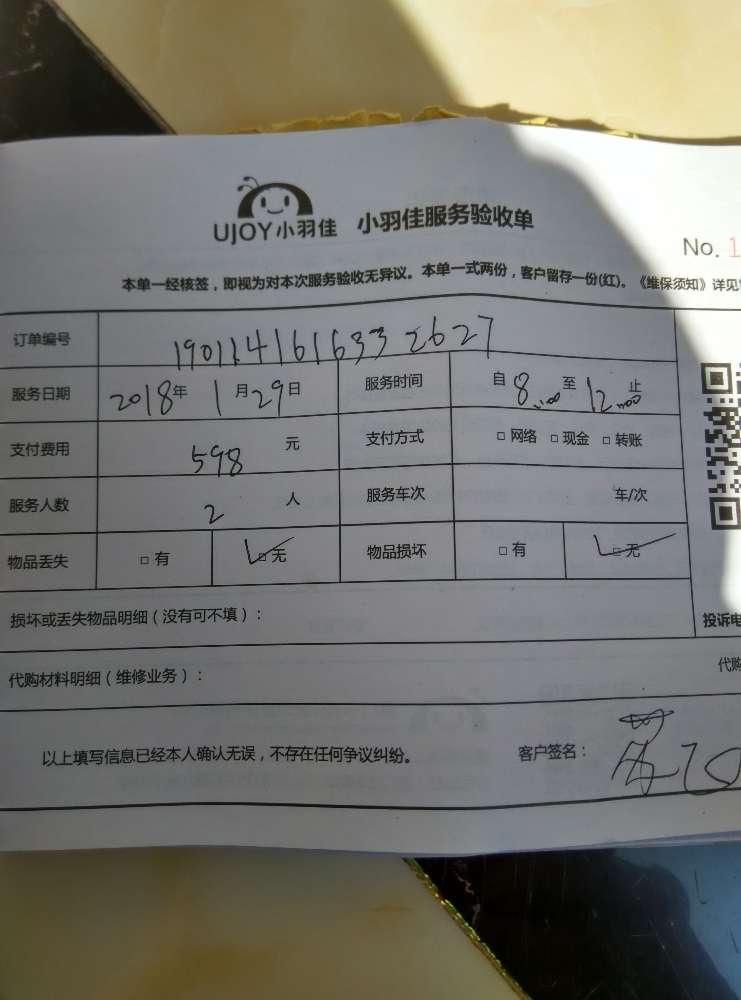 UJOY小羽佳 小羽佳服务验收单
No. 1
本单一经核签，即视为对本次服务验收无异议。本单一式两份，客户留存一份(红)。《维保须知》详见
订单编号 1901141616332627
服务日期 2018年 1月29日 服务时间 自8:00至12:00止
支付费用 598 元 支付方式 □网络 □现金 □转账
服务人数 2 人 服务车次 车/次
物品丢失 □有 ☑无 物品损坏 □有 ☑无
损坏或丢失物品明细（没有可不填）：
投诉电
代购材料明细（维修业务）：
代购
以上填写信息已经本人确认无误，不存在任何争议纠纷。 客户签名：